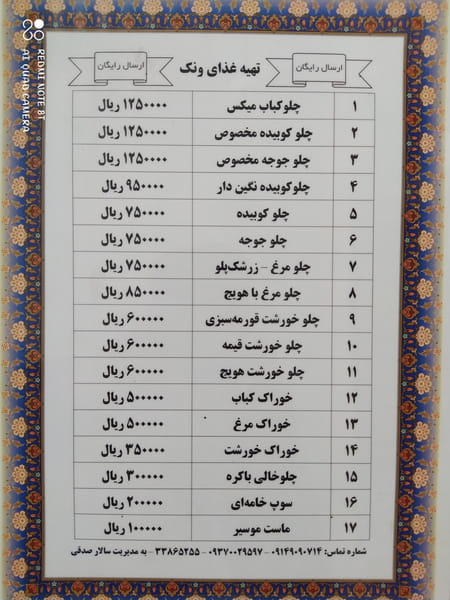 REDMI NOTE 8T
AI QUAD CAMERA
ارسال رایگان تهیه غذای ونک ارسال رایگان
۱ چلوکباب میکس ۱۲۵۰۰۰۰ ریال
۲ چلو کوبیده مخصوص ۱۲۵۰۰۰۰ ریال
۳ چلو جوجه مخصوص ۱۲۵۰۰۰۰ ریال
۴ چلوکوبیده نگین دار ۹۵۰۰۰۰ ریال
۵ چلو کوبیده ۷۵۰۰۰۰ ریال
۶ چلو جوجه ۷۵۰۰۰۰ ریال
۷ چلو مرغ - زرشک‌پلو ۷۵۰۰۰۰ ریال
۸ چلو مرغ با هویج ۸۵۰۰۰۰ ریال
۹ چلو خورشت قورمه‌سبزی ۶۰۰۰۰۰ ریال
۱۰ چلو خورشت قیمه ۶۰۰۰۰۰ ریال
۱۱ چلو خورشت هویج ۶۰۰۰۰۰ ریال
۱۲ خوراک کباب ۵۰۰۰۰۰ ریال
۱۳ خوراک مرغ ۵۰۰۰۰۰ ریال
۱۴ خوراک خورشت ۳۵۰۰۰۰ ریال
۱۵ چلوخالی باکره ۳۰۰۰۰۰ ریال
۱۶ سوپ خامه‌ای ۲۰۰۰۰۰ ریال
۱۷ ماست موسیر ۱۰۰۰۰۰ ریال
شماره تماس: ۰۹۱۴۹۰۹۰۷۱۴ - ۰۹۳۷۰۰۲۹۵۹۷ - ۳۳۸۶۵۲۵۵ - به مدیریت سالار صدقی